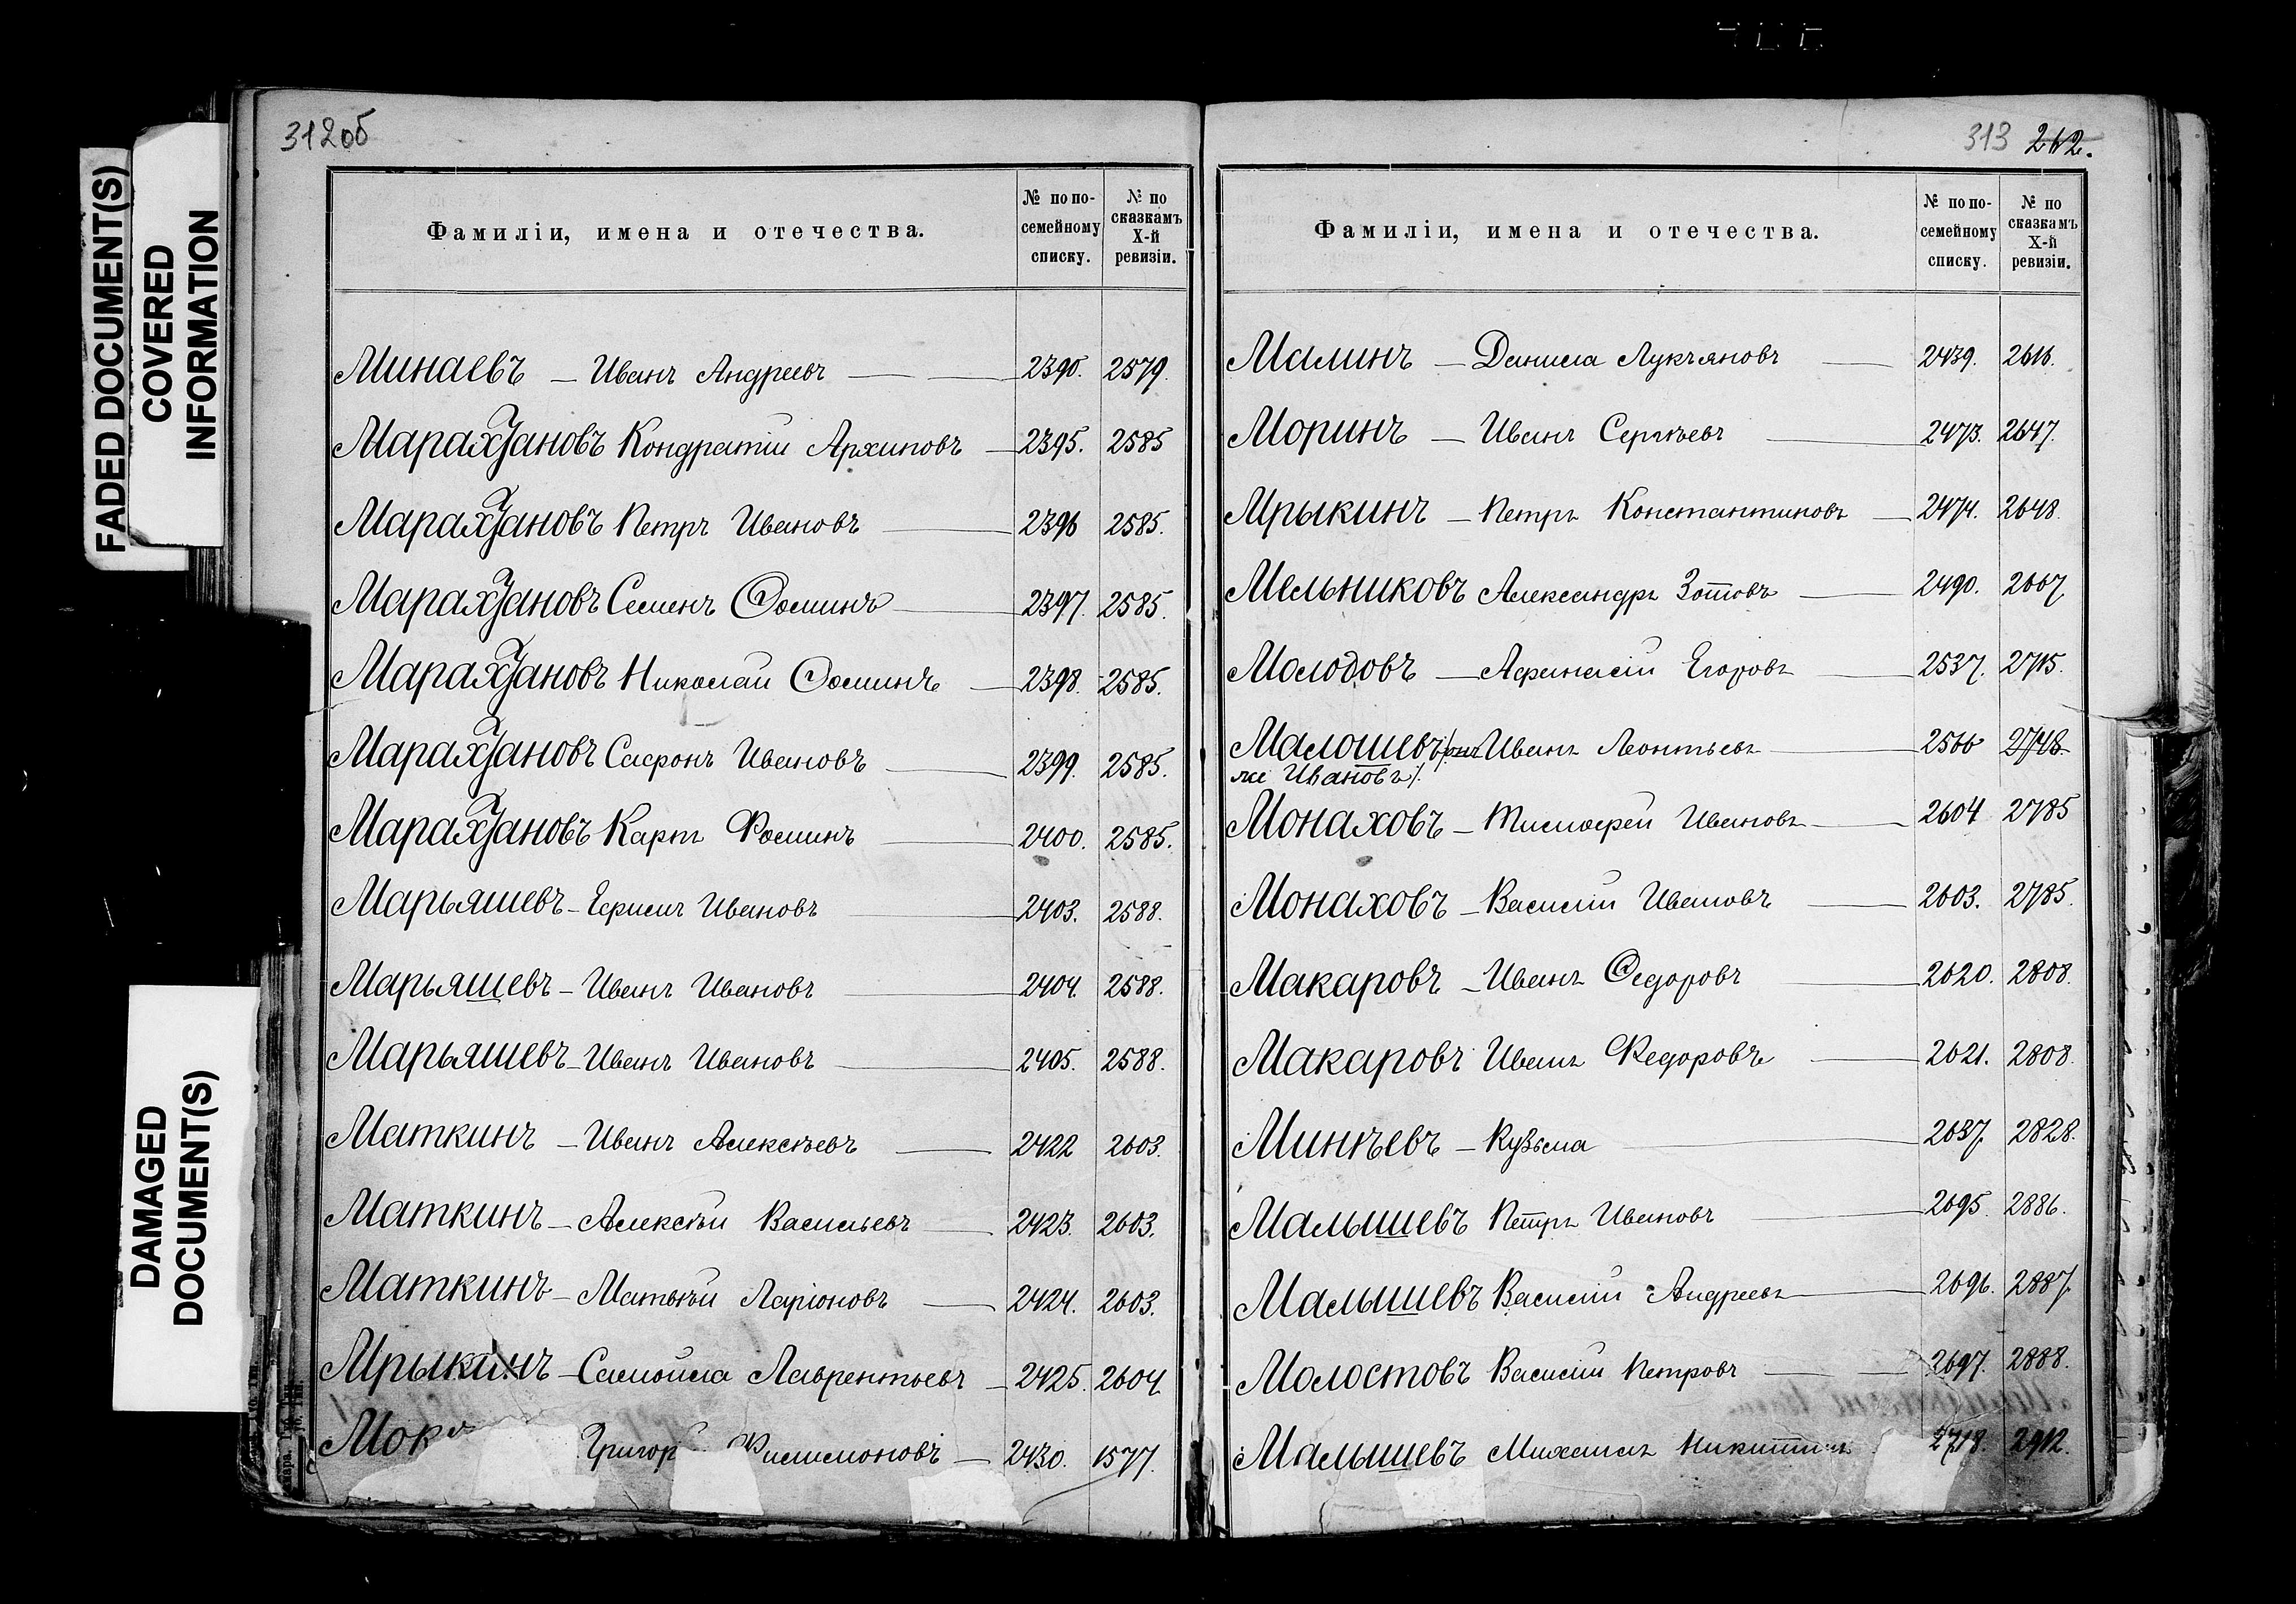 FADED DOCUMENT(S)
COVERED
INFORMATION
DAMAGED
DOCUMENT(S)
312об
Фамиліи, имена и отечества.
№ по по-
семейному
списку.
№ по
сказкамъ
X-й
ревизіи.
Минаевъ — Иванъ Андреевъ — 2390. 2579.
Марахтановъ Кондратій Архиповъ — 2395. 2585
Марахтановъ Петръ Ивановъ — 2396 2585.
Марахтановъ Семенъ Ѳоминъ — 2397. 2585.
Марахтановъ Николай Ѳоминъ — 2398. 2585.
Марахтановъ Сафронъ Ивановъ — 2399. 2585.
Марахтановъ Карпъ Фоминъ — 2400. 2585.
Марьяшевъ — Ефимъ Ивановъ — 2403. 2588.
Марьяшевъ — Иванъ Ивановъ — 2404. 2588.
Марьяшевъ — Иванъ Ивановъ — 2405. 2588.
Маткинъ — Иванъ Алексѣевъ — 2422 2603.
Маткинъ — Алексѣй Васильевъ — 2423. 2603.
Маткинъ — Матвѣй Ларіоновъ — 2424. 2603.
Мрыкинъ — Самойла Лаврентьевъ — 2425. 2604.
Мок Григор Филимоновъ — 2430. 1577.
313 262.
Фамиліи, имена и отечества.
№ по по-
семейному
списку.
№ по
сказкамъ
X-й
ревизіи.
Малинъ — Данила Лукъяновъ — 2439. 2616.
Моринъ — Иванъ Сергѣевъ — 2473. 2647.
Мрыкинъ — Петръ Константиновъ — 2474. 2648.
Мельниковъ Александръ Зотовъ — 2490. 2667
Молодовъ — Афанасій Егоровъ — 2537. 2715.
Малошевъ /: онъ Иванъ Леонтьевъ — 2566 2748.
же Ивановъ :/
Монаховъ — Тимофей Ивановъ — 2604 2785
Монаховъ — Василій Ивановъ — 2603. 2785.
Макаровъ — Иванъ Ѳедоровъ — 2620. 2808.
Макаровъ Иванъ Федоровъ — 2621. 2808.
Минѣевъ — Кузьма — 2637. 2828.
Малышевъ Петръ Ивановъ — 2695. 2886.
Малышевъ Василій Андреевъ — 2696. 2887.
Молостовъ Василій Петровъ — 2697. 2888.
Малышевъ Михаилъ Никитинъ 2718. 2912.